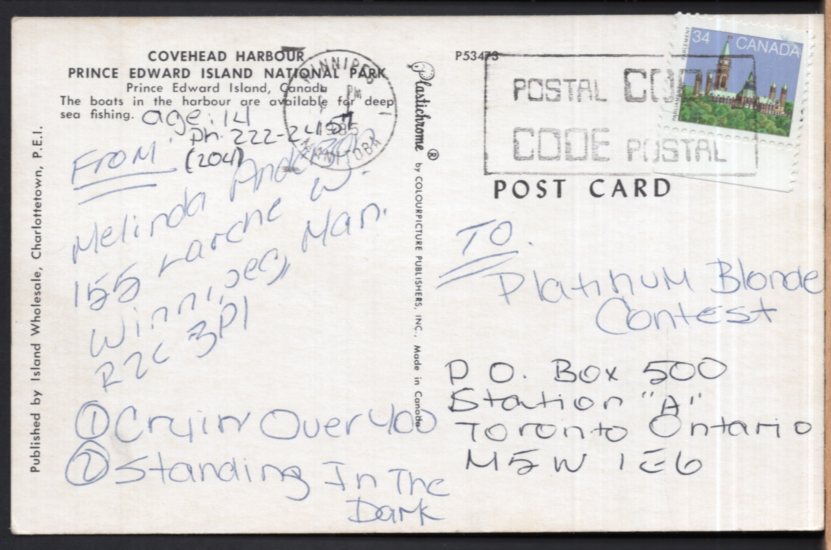 COVEHEAD HARBOUR
PRINCE EDWARD ISLAND NATIONAL PARK
Prince Edward Island, Canada
The boats in the harbour are available for deep
sea fishing.
age: 14
Ph: 222-2
(204)
FROM:
Melinda
155 Larche W.
Winnipeg, Man.
R2C 3P1
① Cryin Over You
② Standing In The
Dark
Published by Island Wholesale, Charlottetown, P.E.I.
Plastichrome ® by COLOURPICTURE PUBLISHERS, INC., Made in Canada
WINNIPEG
PM
MANITOBA
P53473
POSTAL CODE
CODE POSTAL
34 CANADA
POST CARD
TO.
Platinum Blonde
Contest
P O. Box 500
Station "A"
Toronto Ontario
M5W 1E6